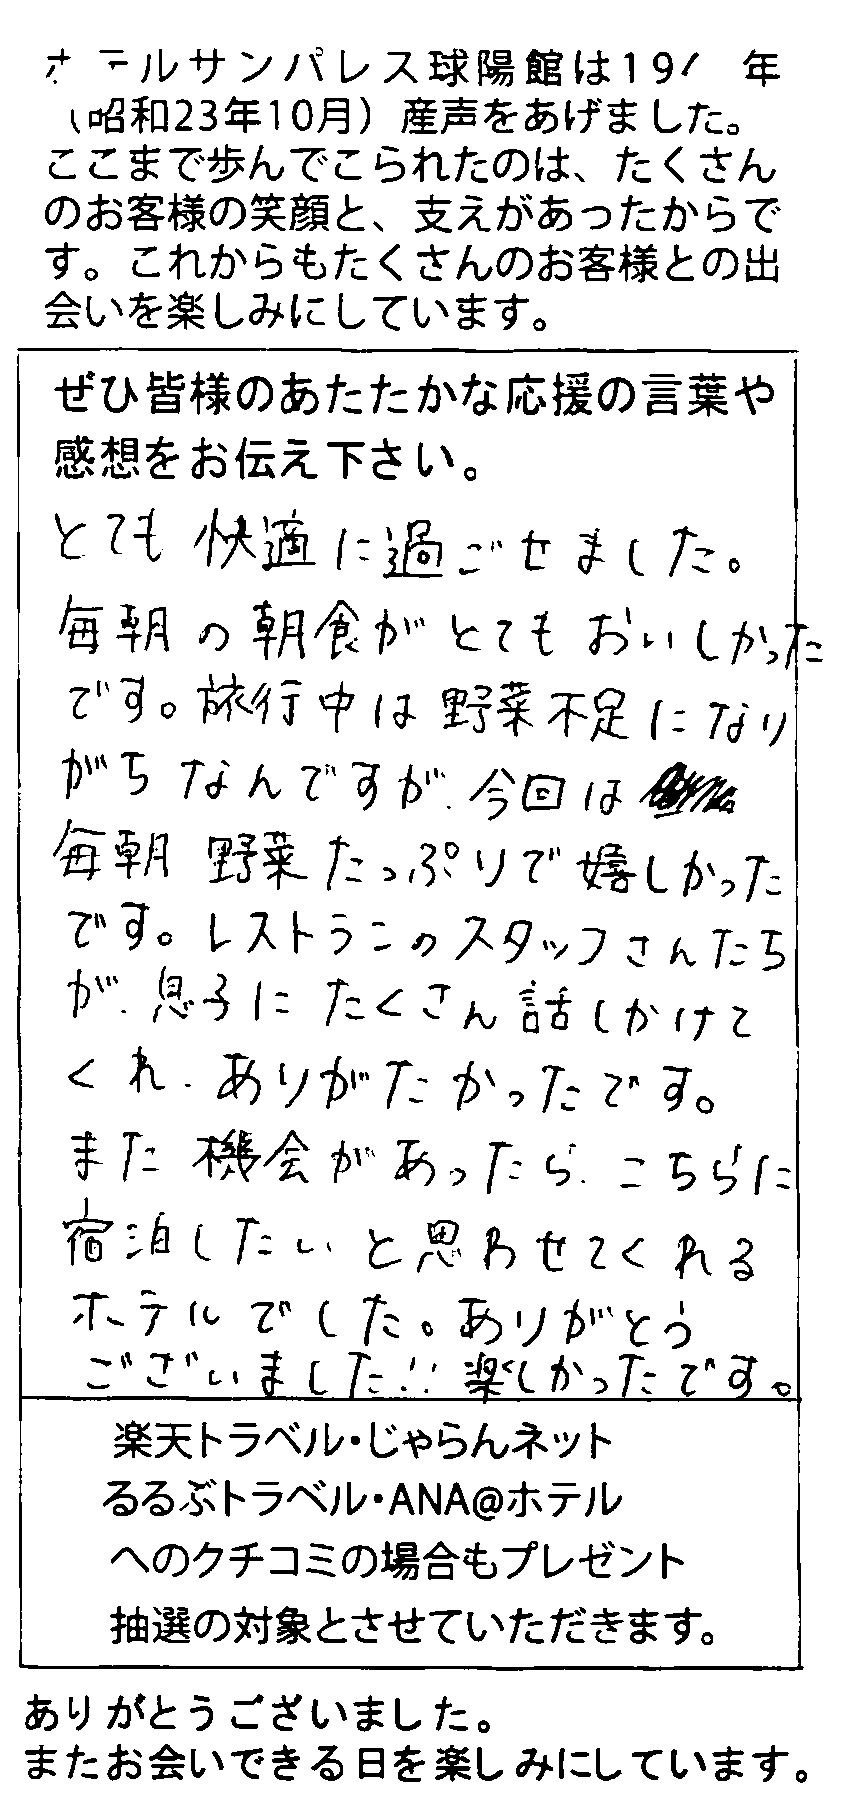 ホテルサンパレス球陽館は19 年
(昭和23年10月)産声をあげました。
ここまで歩んでこられたのは、たくさん
のお客様の笑顔と、支えがあったからで
す。これからもたくさんのお客様との出
会いを楽しみにしています。
ぜひ皆様のあたたかな応援の言葉や
感想をお伝え下さい。
とても快適に過ごせました。
毎朝の朝食がとてもおいしかった
です。旅行中は野菜不足になり
がちなんですが、今回は
毎朝野菜たっぷりで嬉しかった
です。レストランのスタッフさんたち
が、息子にたくさん話しかけて
くれ、ありがたかったです。
また機会があったら、こちらに
宿泊したいと思わせてくれる
ホテルでした。ありがとう
ございました!!楽しかったです。
楽天トラベル・じゃらんネット
るるぶトラベル・ANA@ホテル
へのクチコミの場合もプレゼント
抽選の対象とさせていただきます。
ありがとうございました。
またお会いできる日を楽しみにしています。